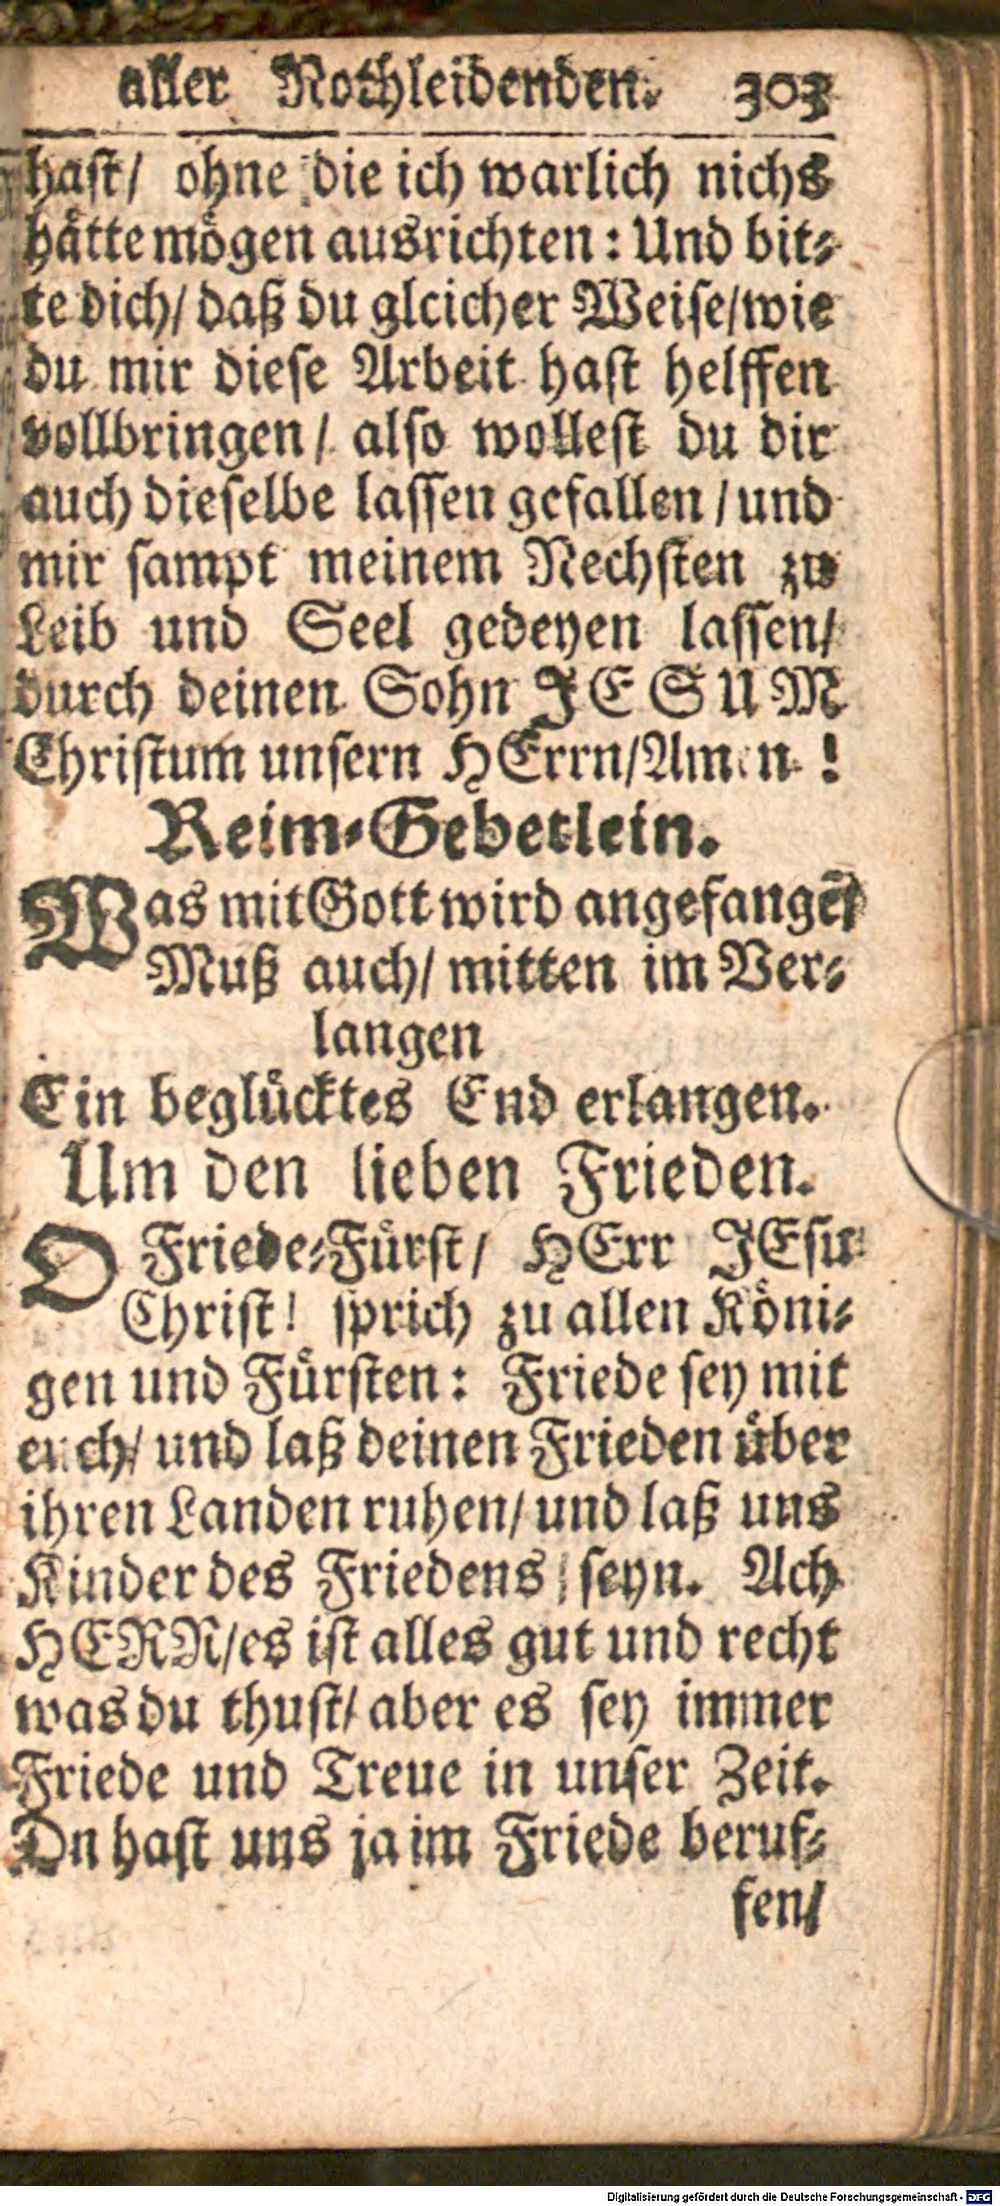 aller Nothleidenden. 303
hast/ ohne die ich warlich nichs
hätte mögen ausrichten: Und bit-
te dich/ daß du gleicher Weise/wie
du mir diese Arbeit hast helffen
vollbringen/ also wollest du dir
auch dieselbe lassen gefallen/und
mir sampt meinem Nechsten zu
Leib und Seel gedeyen lassen/
durch deinen Sohn JESUM
Christum unsern HErrn/Amen!
Reim-Gebetlein.
Was mit Gott wird angefangē/
Muß auch/ mitten im Ver-
langen
Ein beglücktes End erlangen.
Um den lieben Frieden.
O Friede-Fürst/ HErr JEsu
Christ! sprich zu allen Köni-
gen und Fürsten: Friede sey mit
euch/ und laß deinen Frieden über
ihren Landen ruhen/ und laß uns
Kinder des Friedens seyn. Ach
HERR/es ist alles gut und recht
was du thust/ aber es sey immer
Friede und Treue in unser Zeit.
Dn hast uns ja im Friede beruf-
fen/
Digitalisierung gefördert durch die Deutsche Forschungsgemeinschaft - DFG